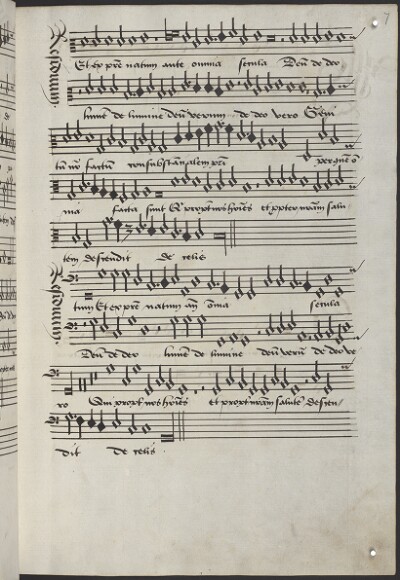 7
Et ex pre natum ante omnia secula Deu de deo
lume de lumine Deu verum de deo vero Geni
tu no factu consubstancialem pri per que o
nia facta sunt Qui propt nos hoies et propter nram salu
tem descendit de celis
tum Et ex pre natum an oma secula
Deu de deo lume de lumine deu veru de deo ve
ro Qui propt nos hoies et propt nram salute descen
dit De celis